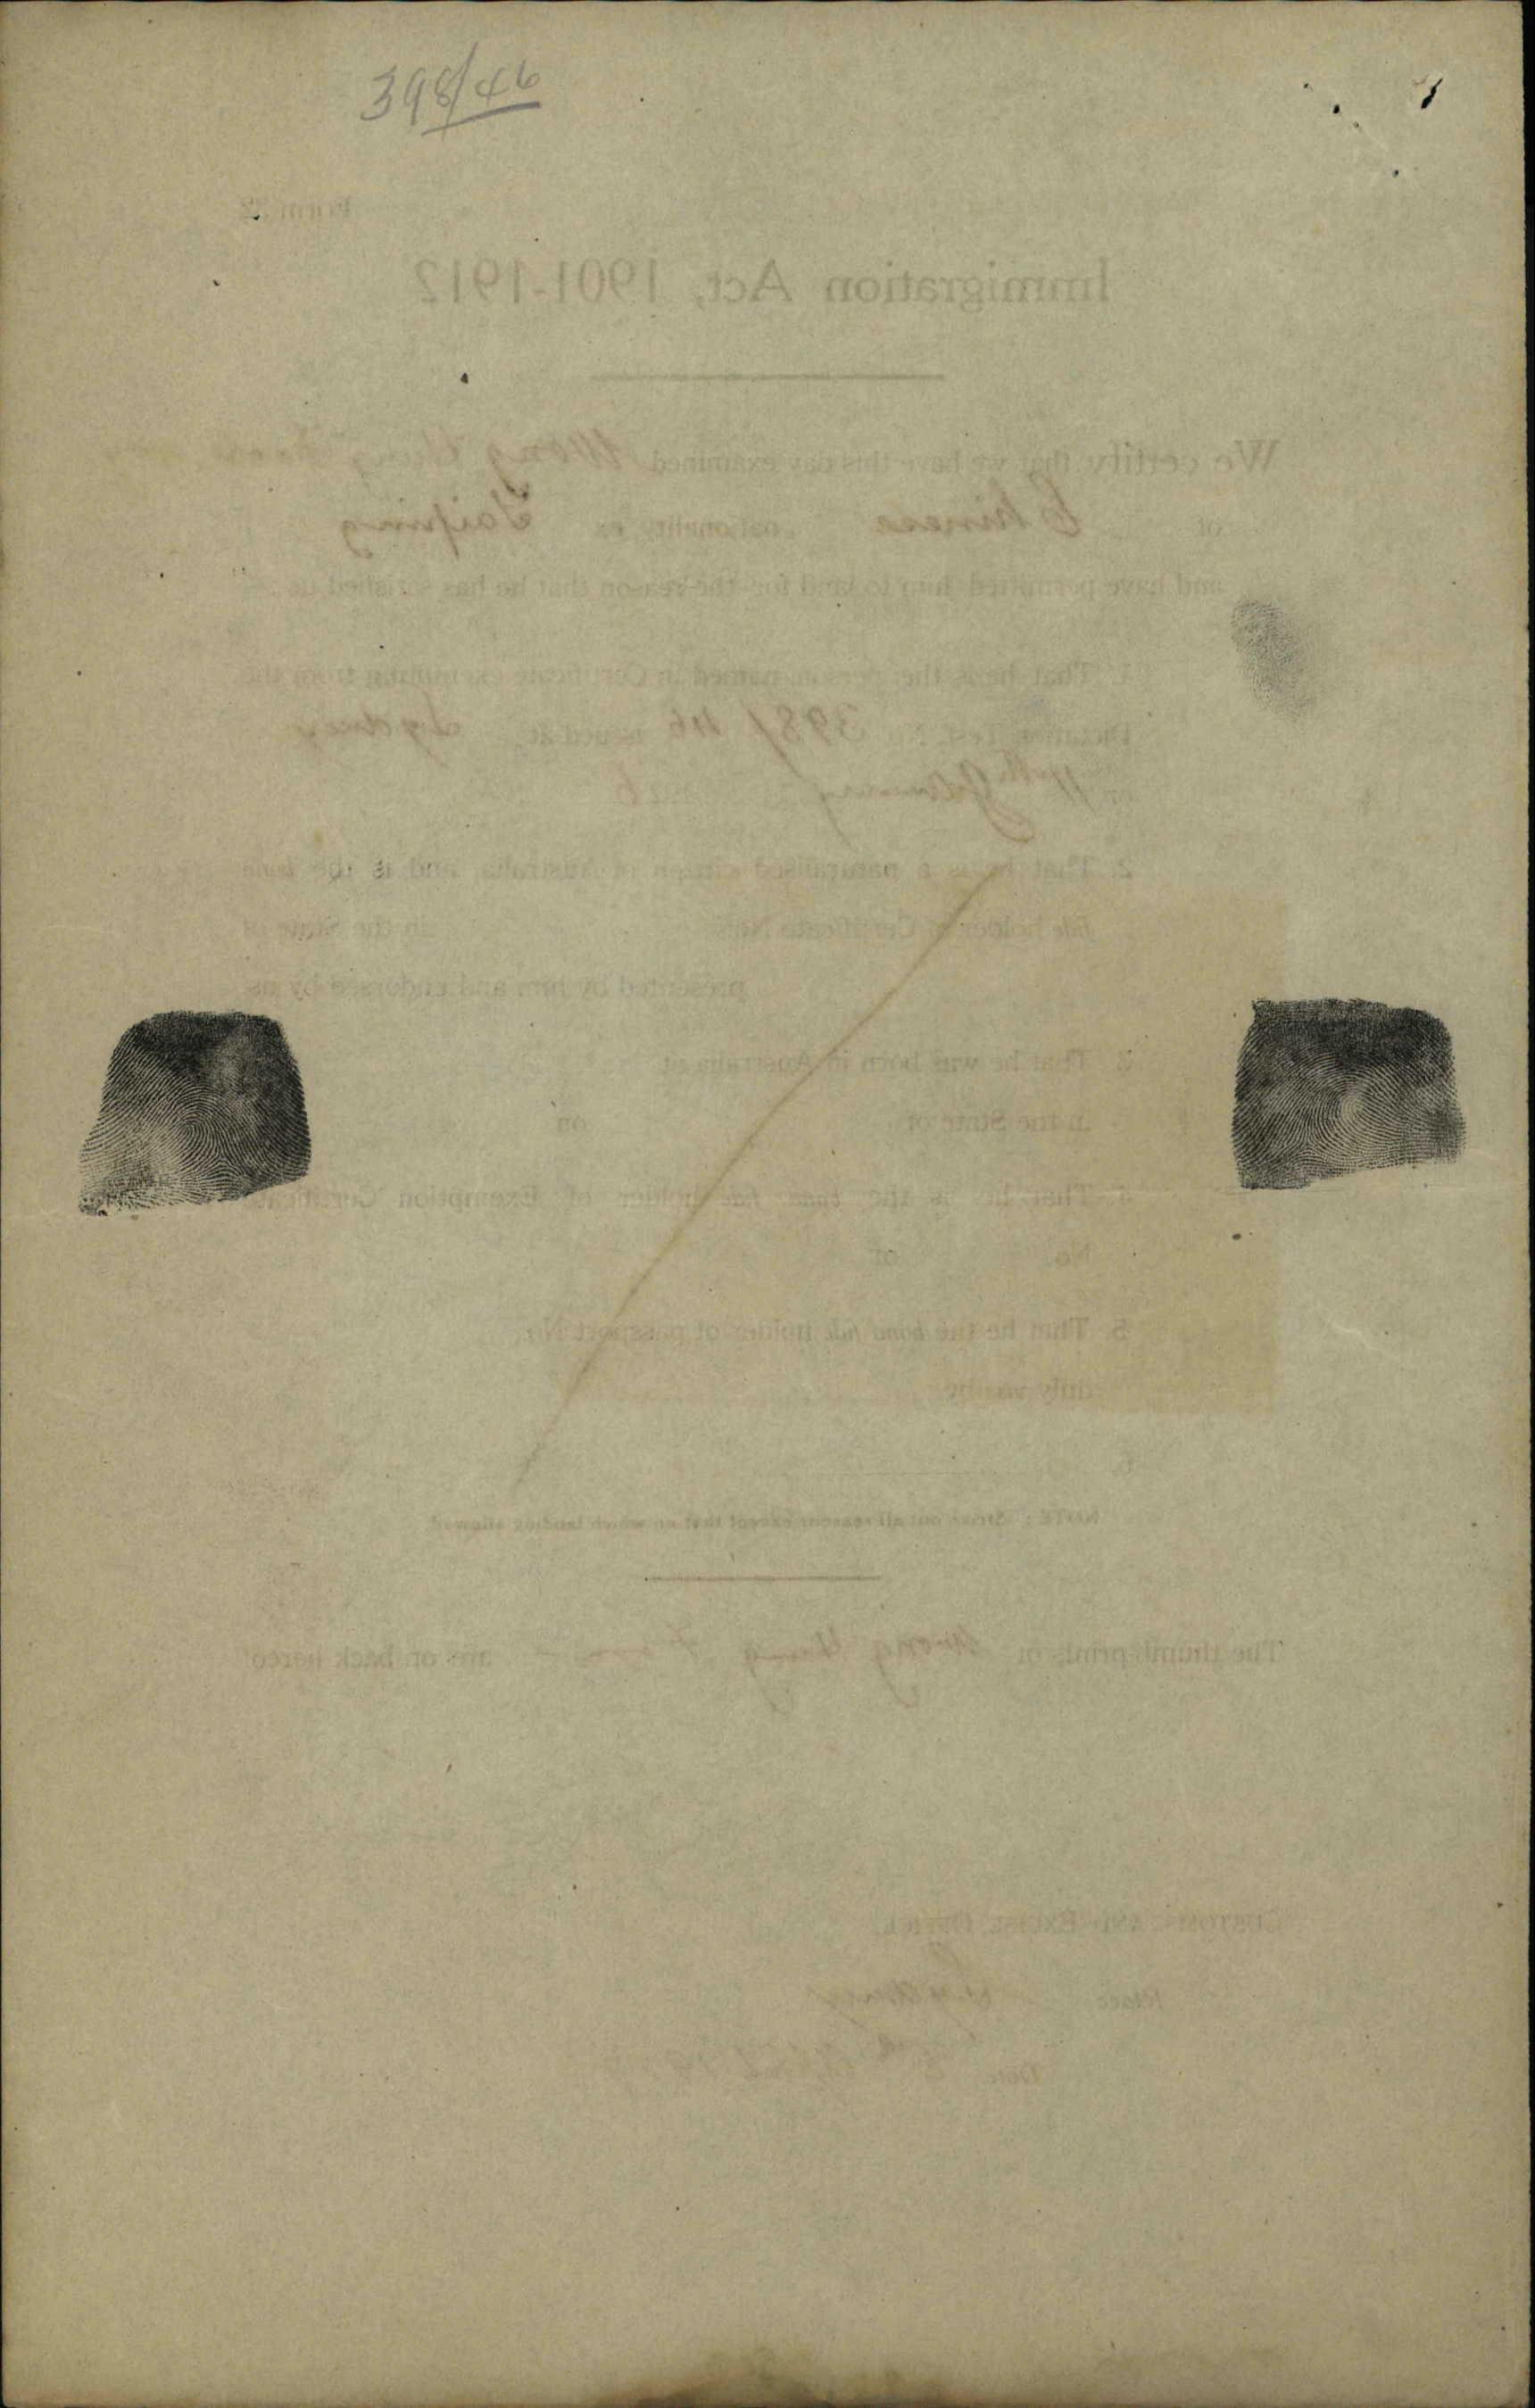 398/46
Form 32
Immigration Act, 1901-1912
We certify that we have this day examined Wong Hung
of Chinese nationality ex Taiping
and have permitted him to land for the reason that he has satisfied us :—
1. That he is the person named in Certificate exempting from the
Dictation Test, No. 398/46 issued at Sydney
on 11th January 1926
2. That he is a naturalised citizen of Australia and is the bona
fide holder of Certificate No. in the State of
presented by him and endorsed by us
3. That he was born in Australia at
in the State of on
4. That he is the bona fide holder of Exemption Certificate
No. of
5. That he the bona fide holder of passport No.
duly vise by
6.
NOTE : Strike out all reasons except that on which landing allowed
The thumb prints of Wong Hung are on back hereof
CUSTOMS AND EXCISE OFFICE
Place Sydney
Date